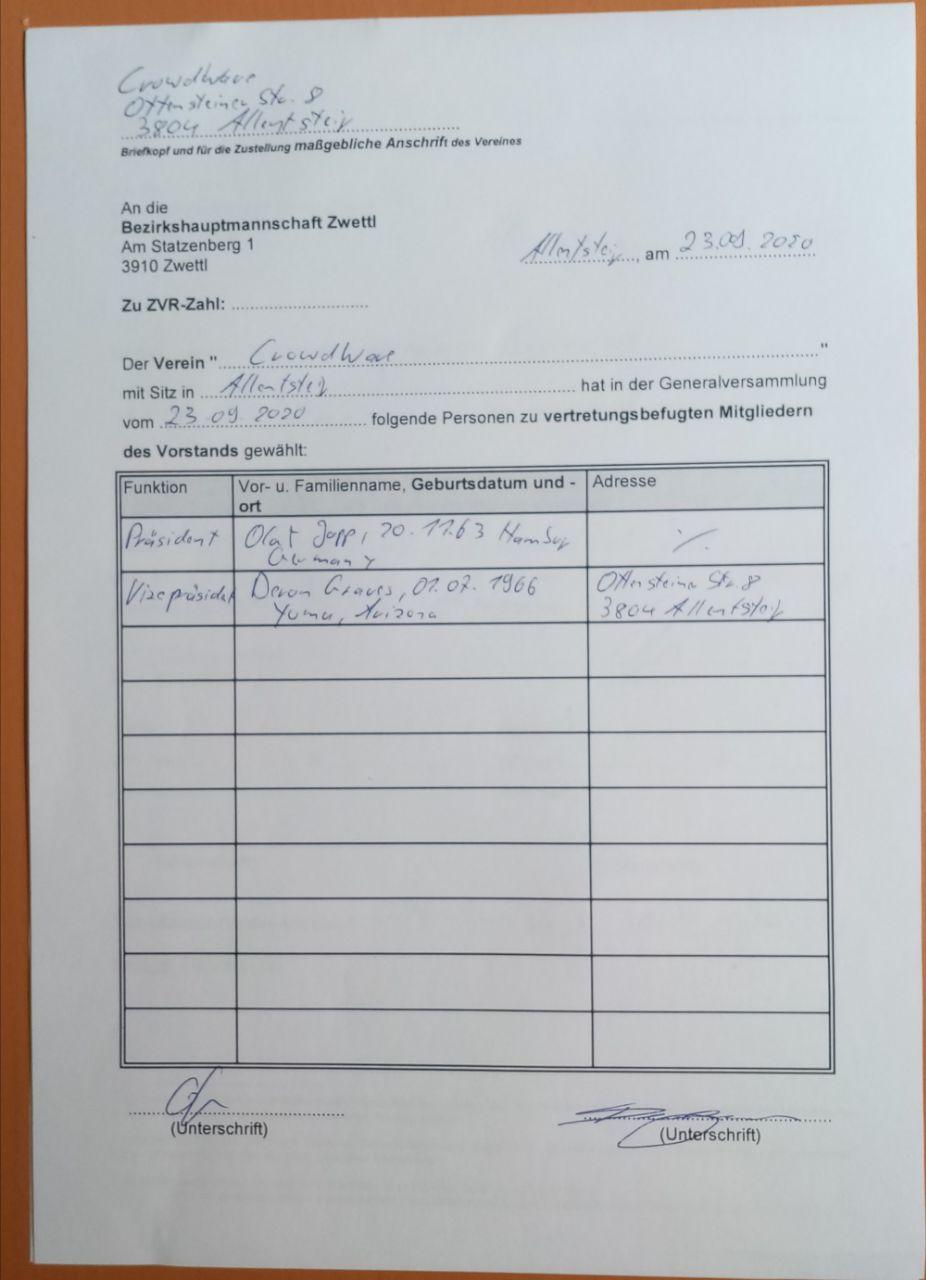 CrowdWave
Ottensteiner Str. 8
3804 Allentsteig
Briefkopf und für die Zustellung maßgebliche Anschrift des Vereines
An die
Bezirkshauptmannschaft Zwettl
Am Statzenberg 1
3910 Zwettl
Allentsteig, am 23.09.2020
Zu ZVR-Zahl:
Der Verein " CrowdWave "
mit Sitz in Allentsteig hat in der Generalversammlung
vom 23.09.2020 folgende Personen zu vertretungsbefugten Mitgliedern
des Vorstands gewählt:
Funktion Vor- u. Familienname, Geburtsdatum und - Adresse
ort
Präsident Olaf Jopp, 20.11.63 Hamburg ./.
Germany
Vizepräsident Devon Graves, 01.07.1966 Ottensteiner Str. 8
Yuma, Arizona 3804 Allentsteig
(Unterschrift) (Unterschrift)